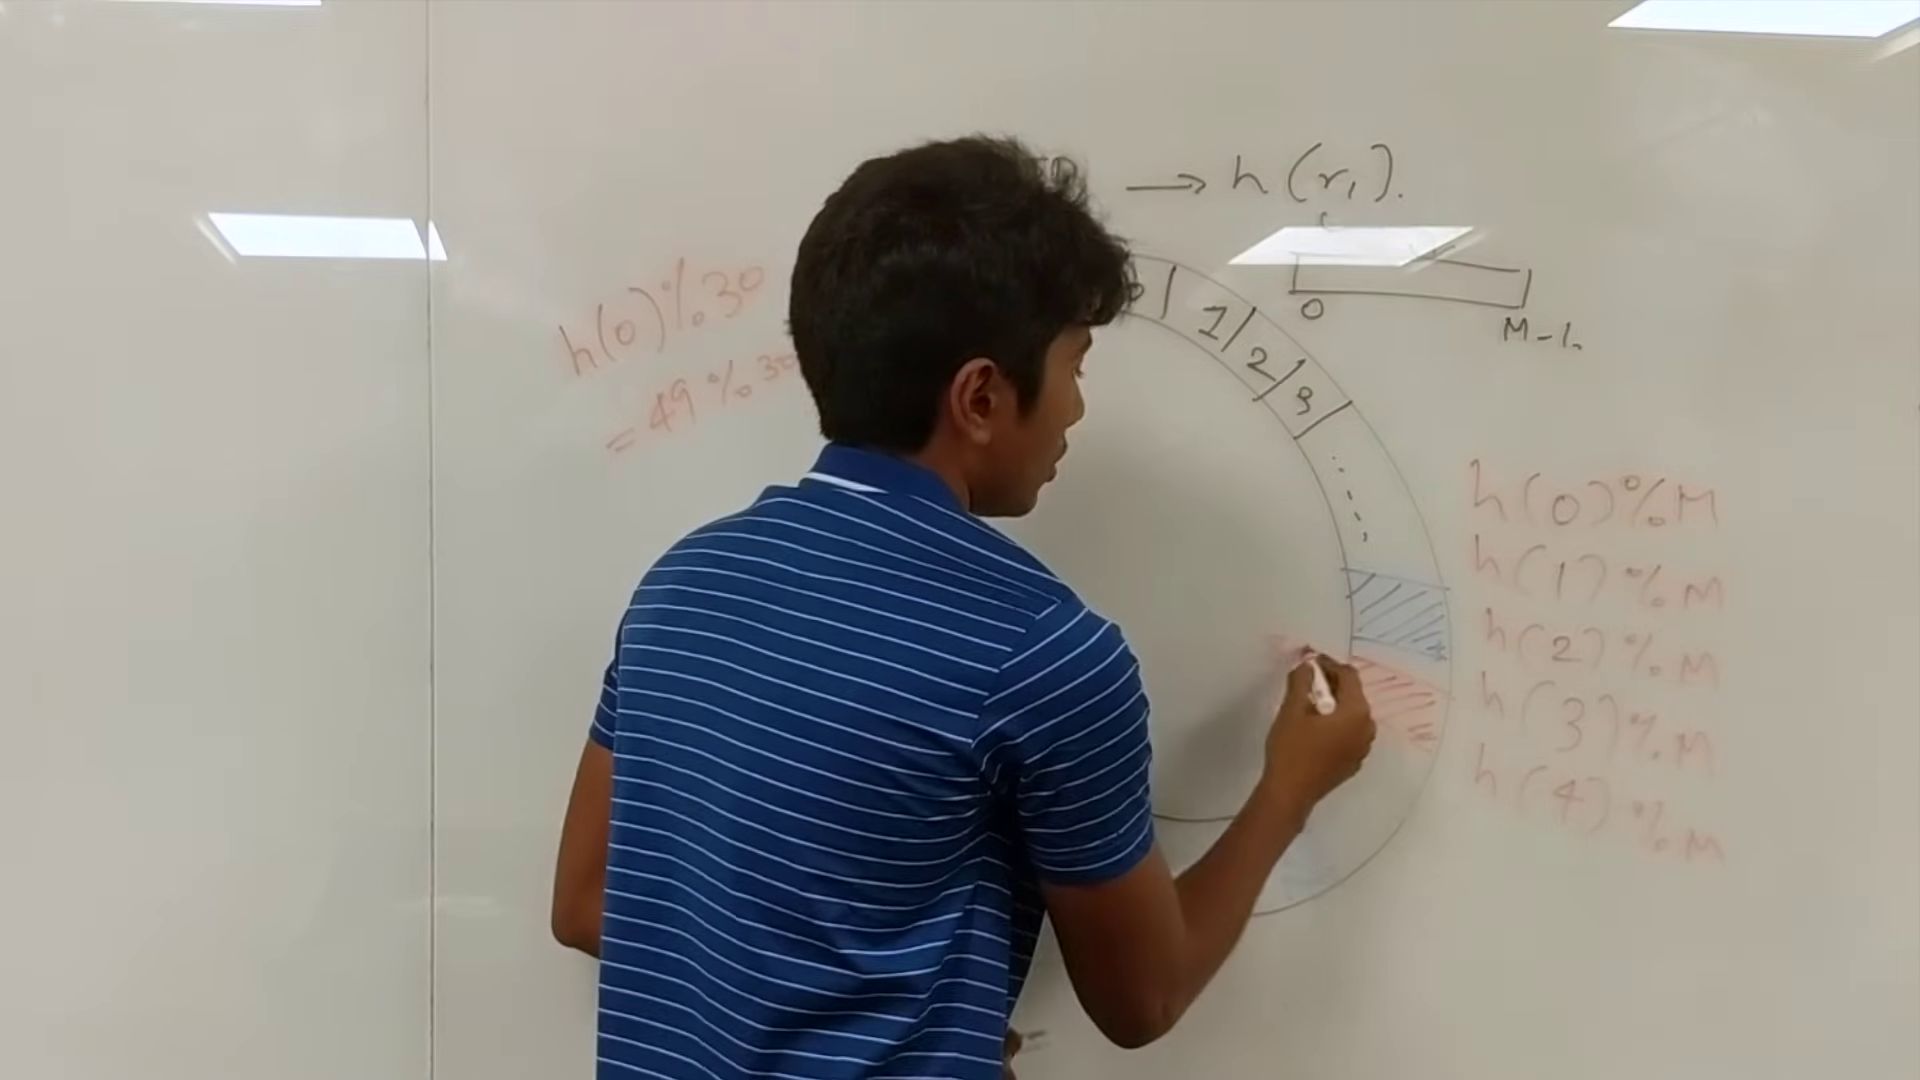 → h(r₁).
0
M-1.
h(0)%30
= 49%30
1
2
3
h(0)%M
h(1)%M
h(2)%M
h(3)%M
h(4)%M